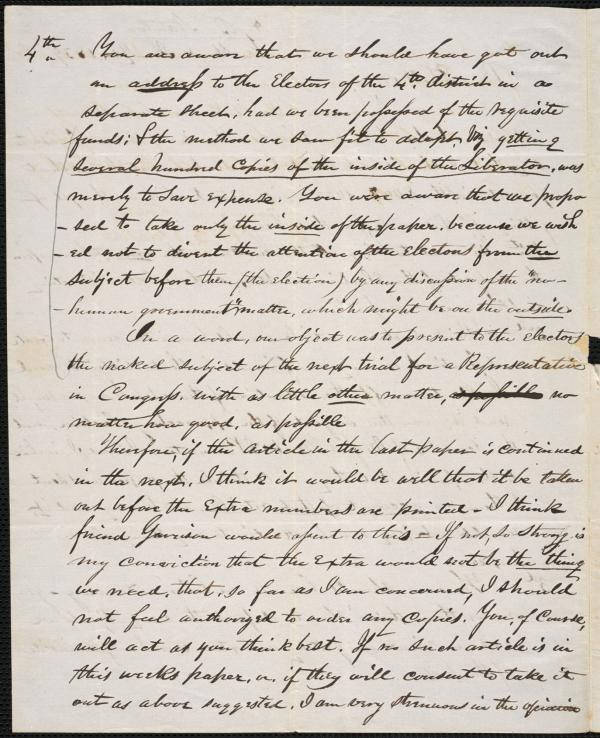 4th You are aware that we should have got out
an address to the Electors of the 4th district in a
separate sheet, had we been possessed of the requisite
funds; & the method we saw fit to adopt, viz getting
several hundred copies of the inside of the Liberator, was
merely to save expense. You were aware that we propo
-sed to take only the inside of the paper, because we wish
-ed not to divert the attention of the electors from the
subject before them (the election) by any discussion of the "no-
-human government" matter, which might be on the outside.
In a word, our object was to present to the electors
the naked subject of the next trial for a Representative
in Congress, with as little other matter, as possible no
matter how good, as possible
Therefore, if the article in the last paper is continued
in the next, I think it would be well that it be taken
out before the Extra numbers are printed - I think
friend Garrison would assent to this - If not, so strong is
my conviction that the Extra would not be the thing
we need, that, so far as I am concerned, I should
not feel authorized to order any copies. You, of course,
will act as you think best. If no such article is in
this weeks paper, or, if they will consent to take it
out as above suggested, I am very strenuous in the opinion